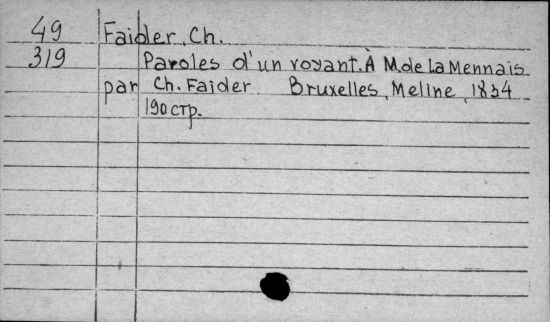 49 Faider, Ch.
319 Paroles d'un voyant. À M. de La Mennais
par Ch. Faider. Bruxelles, Meline, 1834
190 стр.